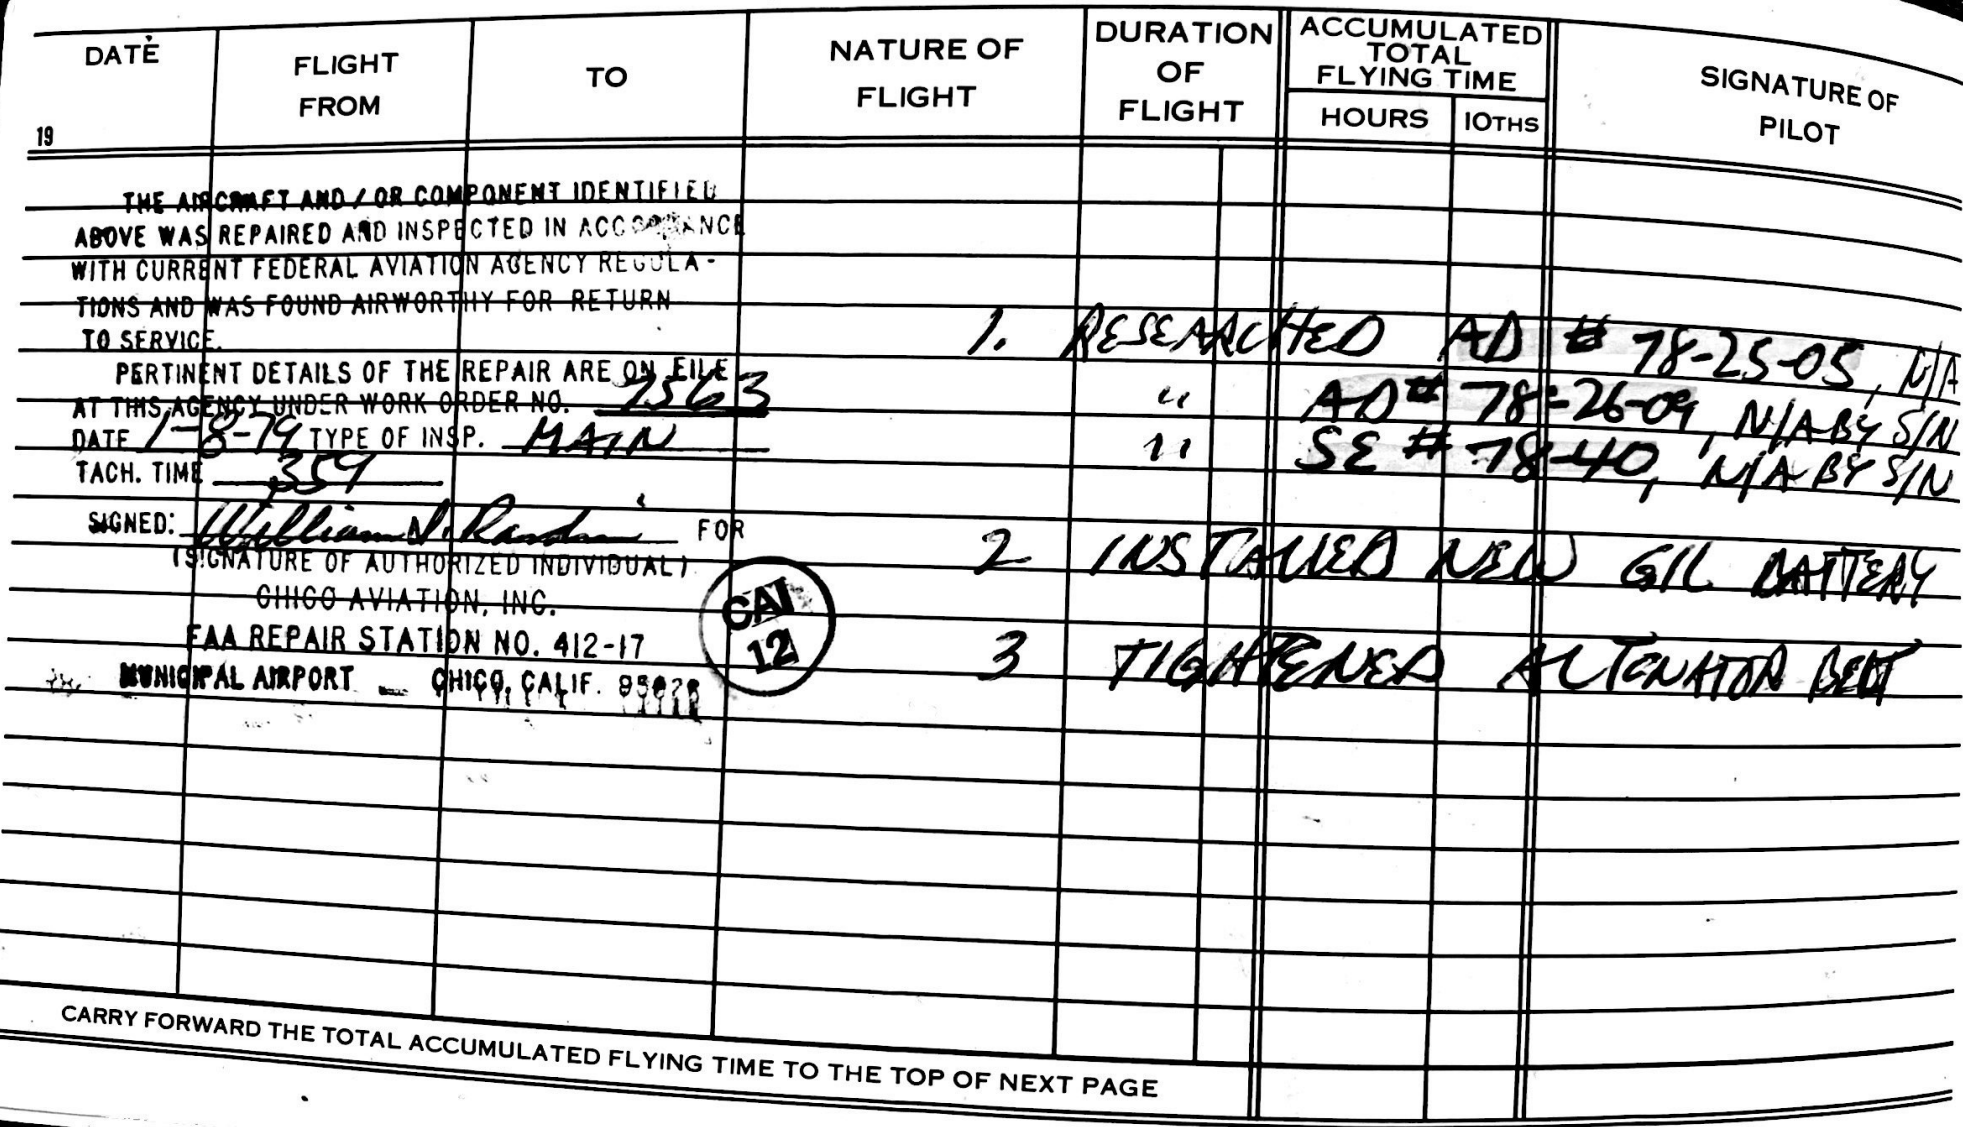 DATE
FLIGHT
FROM
TO
NATURE OF
FLIGHT
DURATION
OF
FLIGHT
ACCUMULATED
TOTAL
FLYING TIME
HOURS
10THS
SIGNATURE OF
PILOT
19
THE AIRCRAFT AND / OR COMPONENT IDENTIFIED
ABOVE WAS REPAIRED AND INSPECTED IN ACCORDANCE
WITH CURRENT FEDERAL AVIATION AGENCY REGULA-
TIONS AND WAS FOUND AIRWORTHY FOR RETURN
TO SERVICE.
PERTINENT DETAILS OF THE REPAIR ARE ON FILE
AT THIS AGENCY UNDER WORK ORDER NO. 7563
DATE 1-8-79 TYPE OF INSP. MAIN
TACH. TIME 359
SIGNED: William FOR
(SIGNATURE OF AUTHORIZED INDIVIDUAL)
CHICO AVIATION, INC.
FAA REPAIR STATION NO. 412-17
MUNICIPAL AIRPORT CHICO, CALIF.
CAI
12
1. RESEARCHED AD # 78-25-05, N/A
" AD# 78-26-09, N/A BY S/N
" SE # 78-40, N/A BY S/N
2 INSTALLED NEW GILL BATTERY
3 TIGHTENED ALTENATOR BELT
CARRY FORWARD THE TOTAL ACCUMULATED FLYING TIME TO THE TOP OF NEXT PAGE